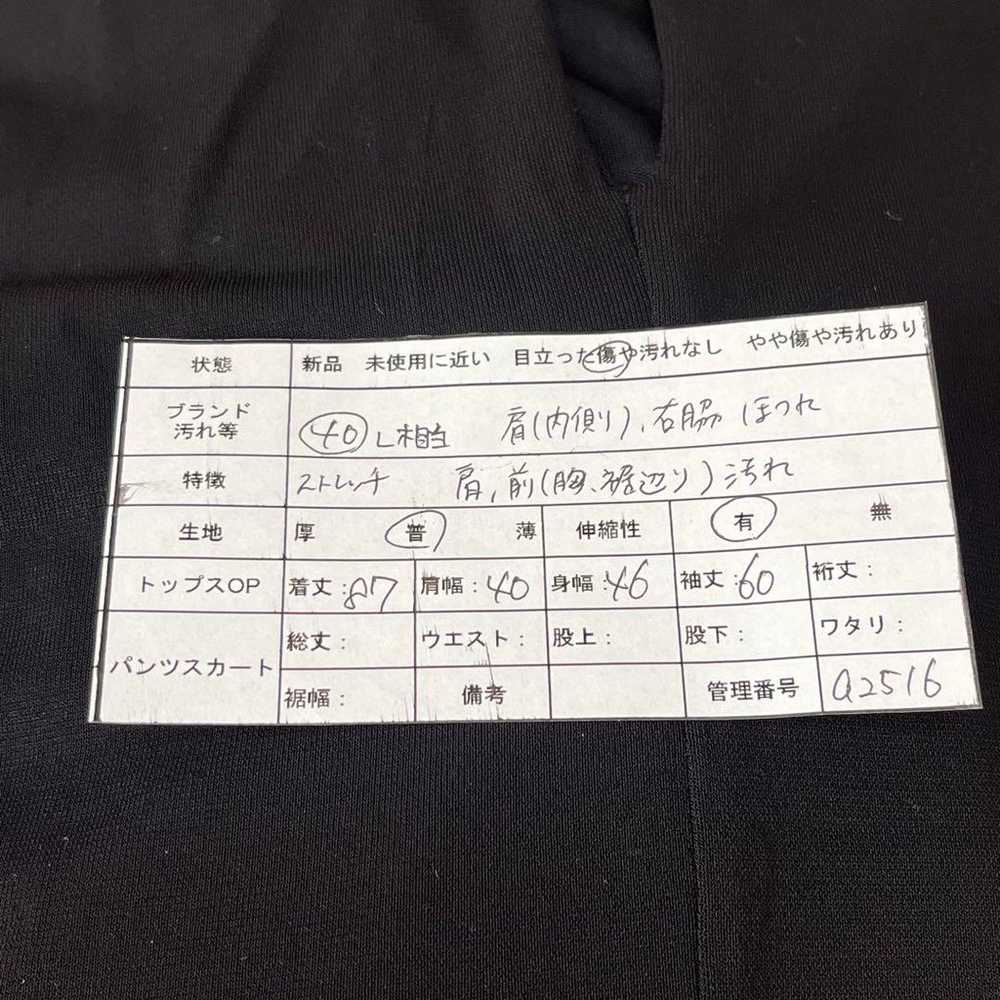 状態 新品 未使用に近い 目立った傷や汚れなし やや傷や汚れあり
ブランド
汚れ等 40 L相当 肩(内側)、右脇 ほつれ
特徴 ストレッチ 肩、前(胸、裾辺り)汚れ
生地 厚 普 薄 伸縮性 有 無
トップスOP 着丈:87 肩幅:40 身幅:46 袖丈:60 裄丈:
パンツスカート 総丈: ウエスト: 股上: 股下: ワタリ:
裾幅: 備考 管理番号 a2516